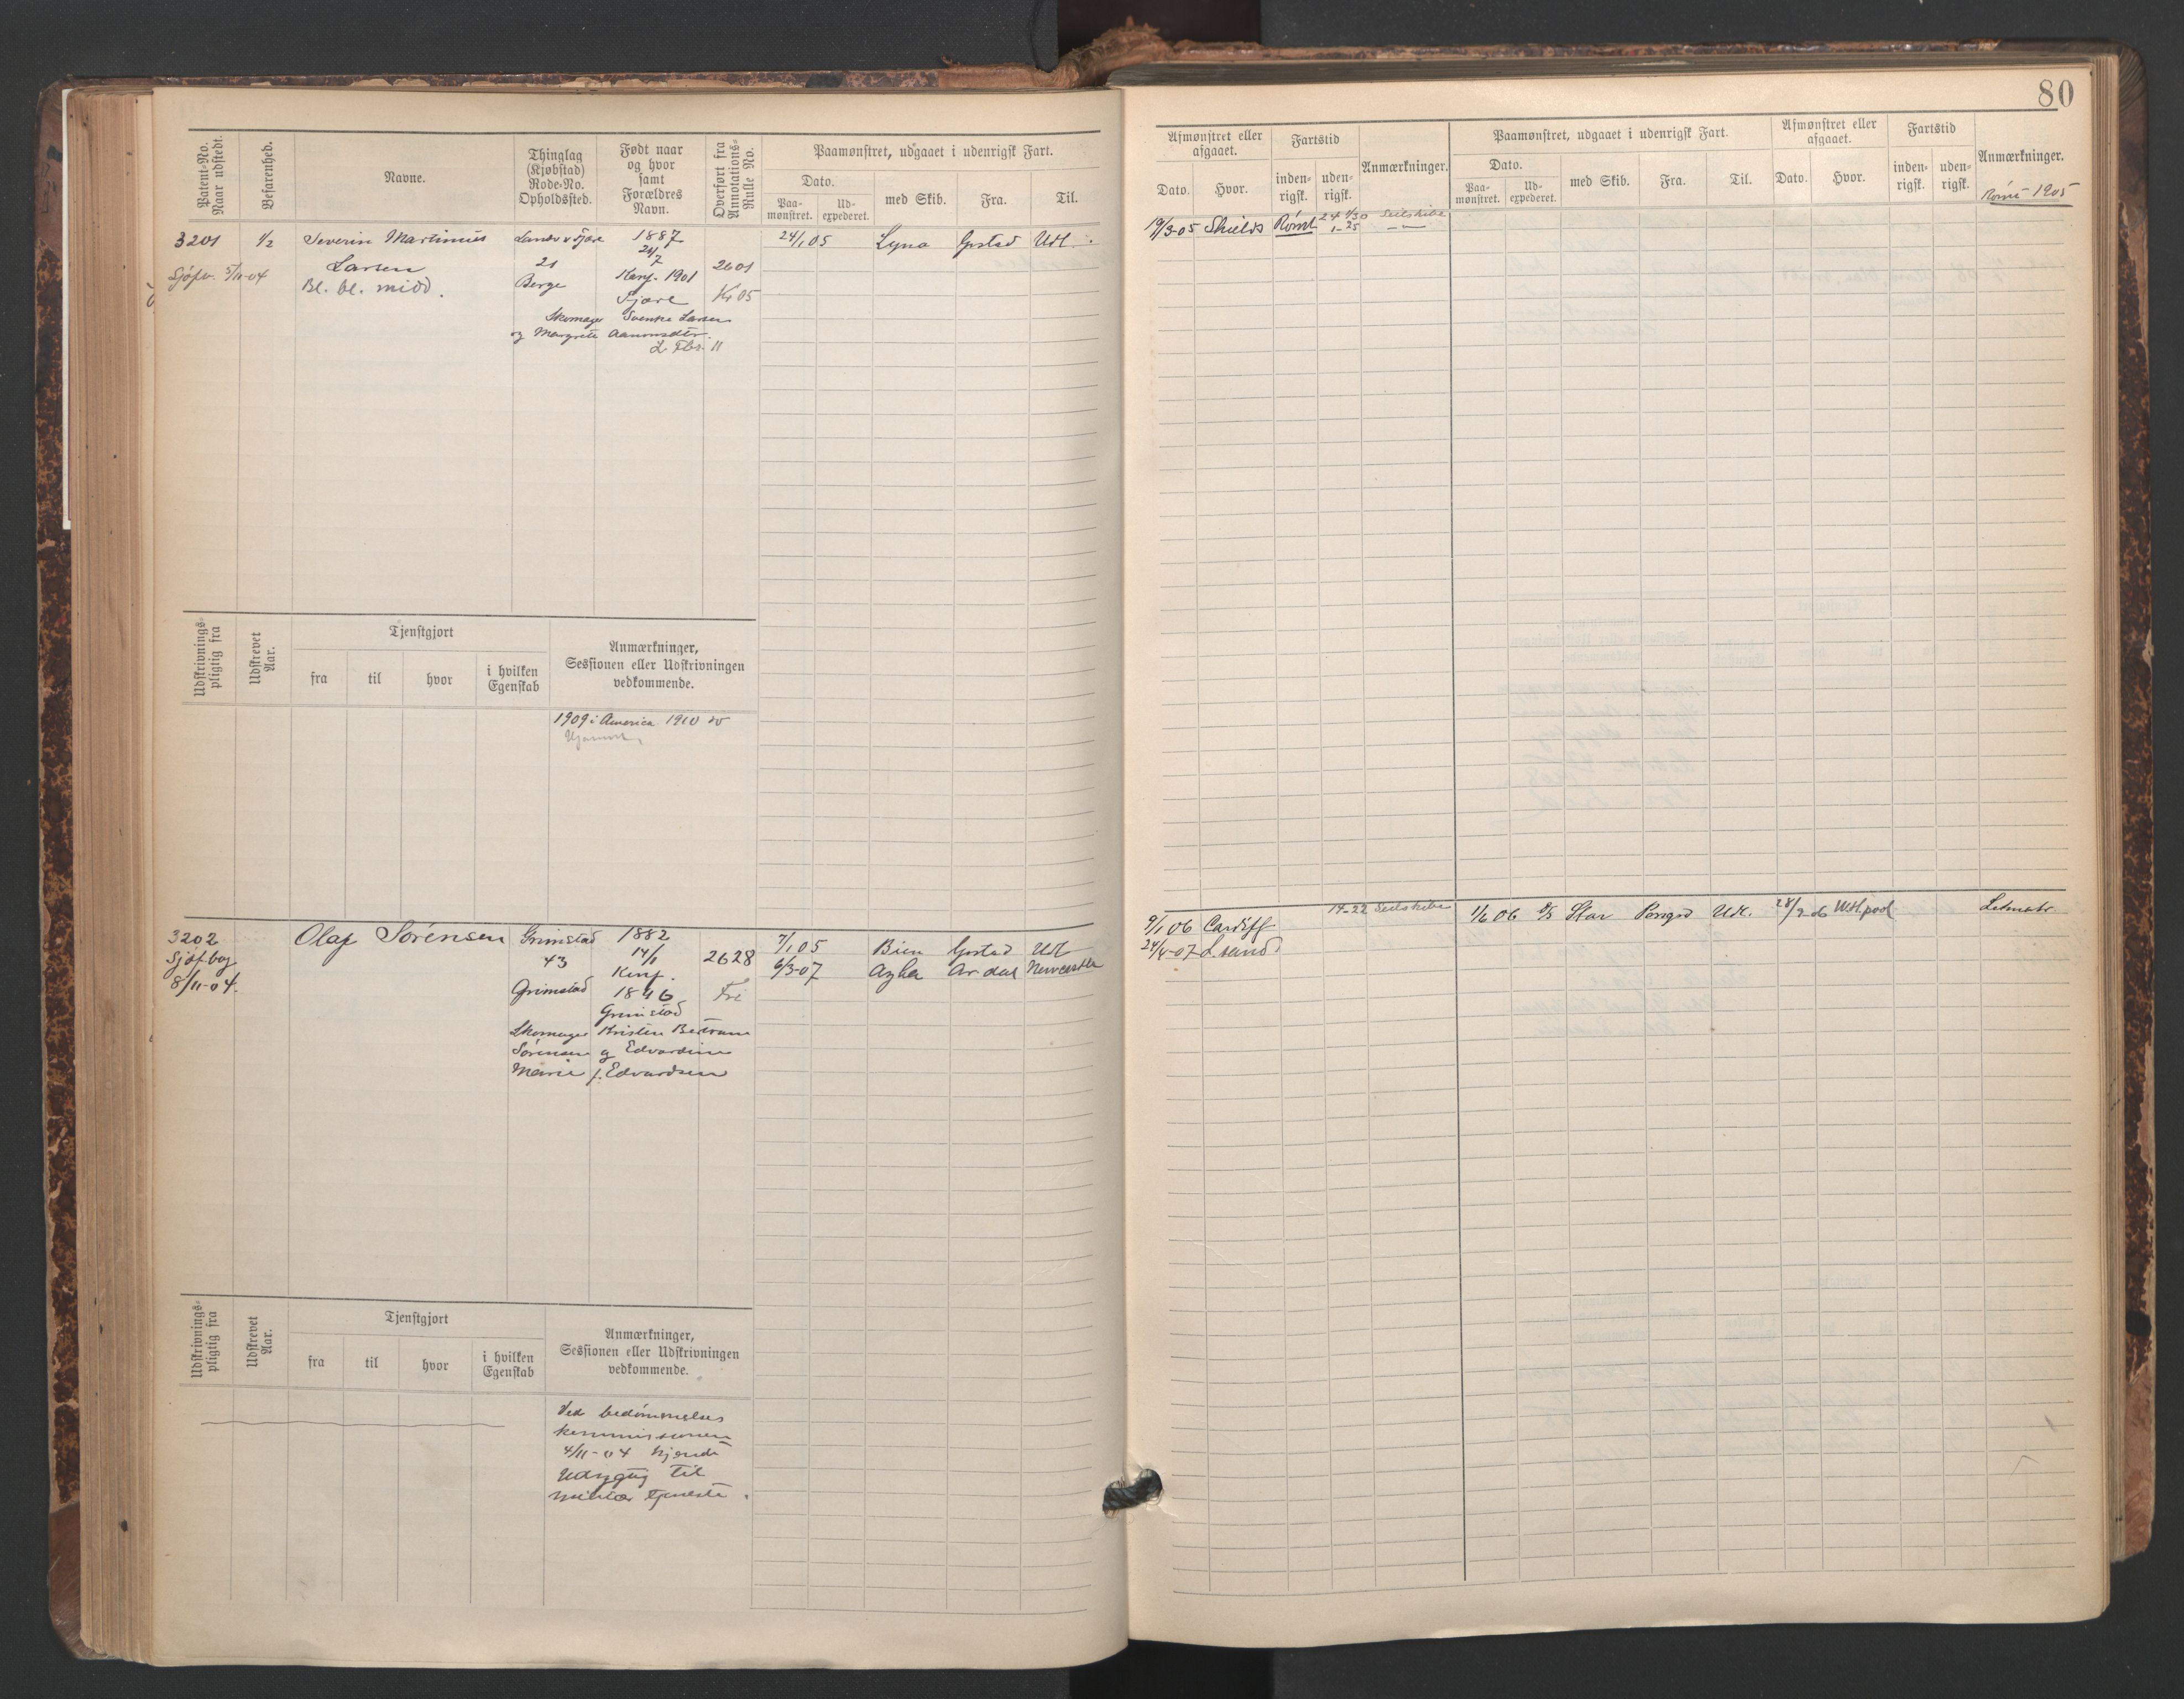 80
Patent-No. Naar udstedt.
Befarenhed.
Navne.
Thinglag (Kjøbstad) Rode-No. Opholdssted.
Født naar og hvor samt Forældres Navn.
Overført fra Annotations-Rulle No.
Paamønstret, udgaaet i udenrigsk Fart.
Dato.
Paa-mønstret.
Ud-expederet.
med Skib.
Fra.
Til.
3201
1/2
Severin Martinius
Larsen
Bl. bl. midd.
Sjøfv. 5/11-04
Landv v Fjære
21
Berge
1887
24/7
Konf. 1901
Fjære
Skomager Svenke Larsen
og Margrete Aanonsdtr.
2601
Kr 05
24/1 05
Lyna
Grstad
Udl.
Udskrivnings-pligtig fra
Udskrevet Aar.
Tjenstgjort
fra
til
hvor
i hvilken Egenskab
Anmærkninger, Sessionen eller Udskrivningen vedkommende.
1909 i America 1910 do
3202
Sjøfbog
8/11-04.
Olaf Sørensen
Grimstad
43
Grimstad
1882
14/1
Konf.
1896
Grimstad
Skomager Kristen Bertram
Sørensen og Edvardine
Marie f. Edvardsen
2628
Fri
7/1 05
Bien
Grstad
Udl
6/3-07
Azha
Ardal
Newcastle
Udskrivnings-pligtig fra
Udskrevet Aar.
Tjenstgjort
fra
til
hvor
i hvilken Egenskab
Anmærkninger, Sessionen eller Udskrivningen vedkommende.
Ved bedømmelses
kommissionen
4/11-04 kjendt
Udygtig til
militær tjeneste.
Afmønstret eller afgaaet.
Dato.
Hvor.
Fartstid
inden-rigsk.
uden-rigsk.
Anmærkninger.
Paamønstret, udgaaet i udenrigsk Fart.
Dato.
Paa-mønstret.
Ud-expederet.
med Skib.
Fra.
Til.
Afmønstret eller afgaaet.
Dato.
Hvor.
Fartstid
inden-rigsk.
uden-rigsk.
Anmærkninger.
Rømt 1905
19/3-05 Shields Rømt
1-25
Seilskibe
9/1 06 Cardiff
14-22 Seilskibe
24/4-07 L.sund
1/6 06
Star
Porsgrd
Udl.
28/7-06